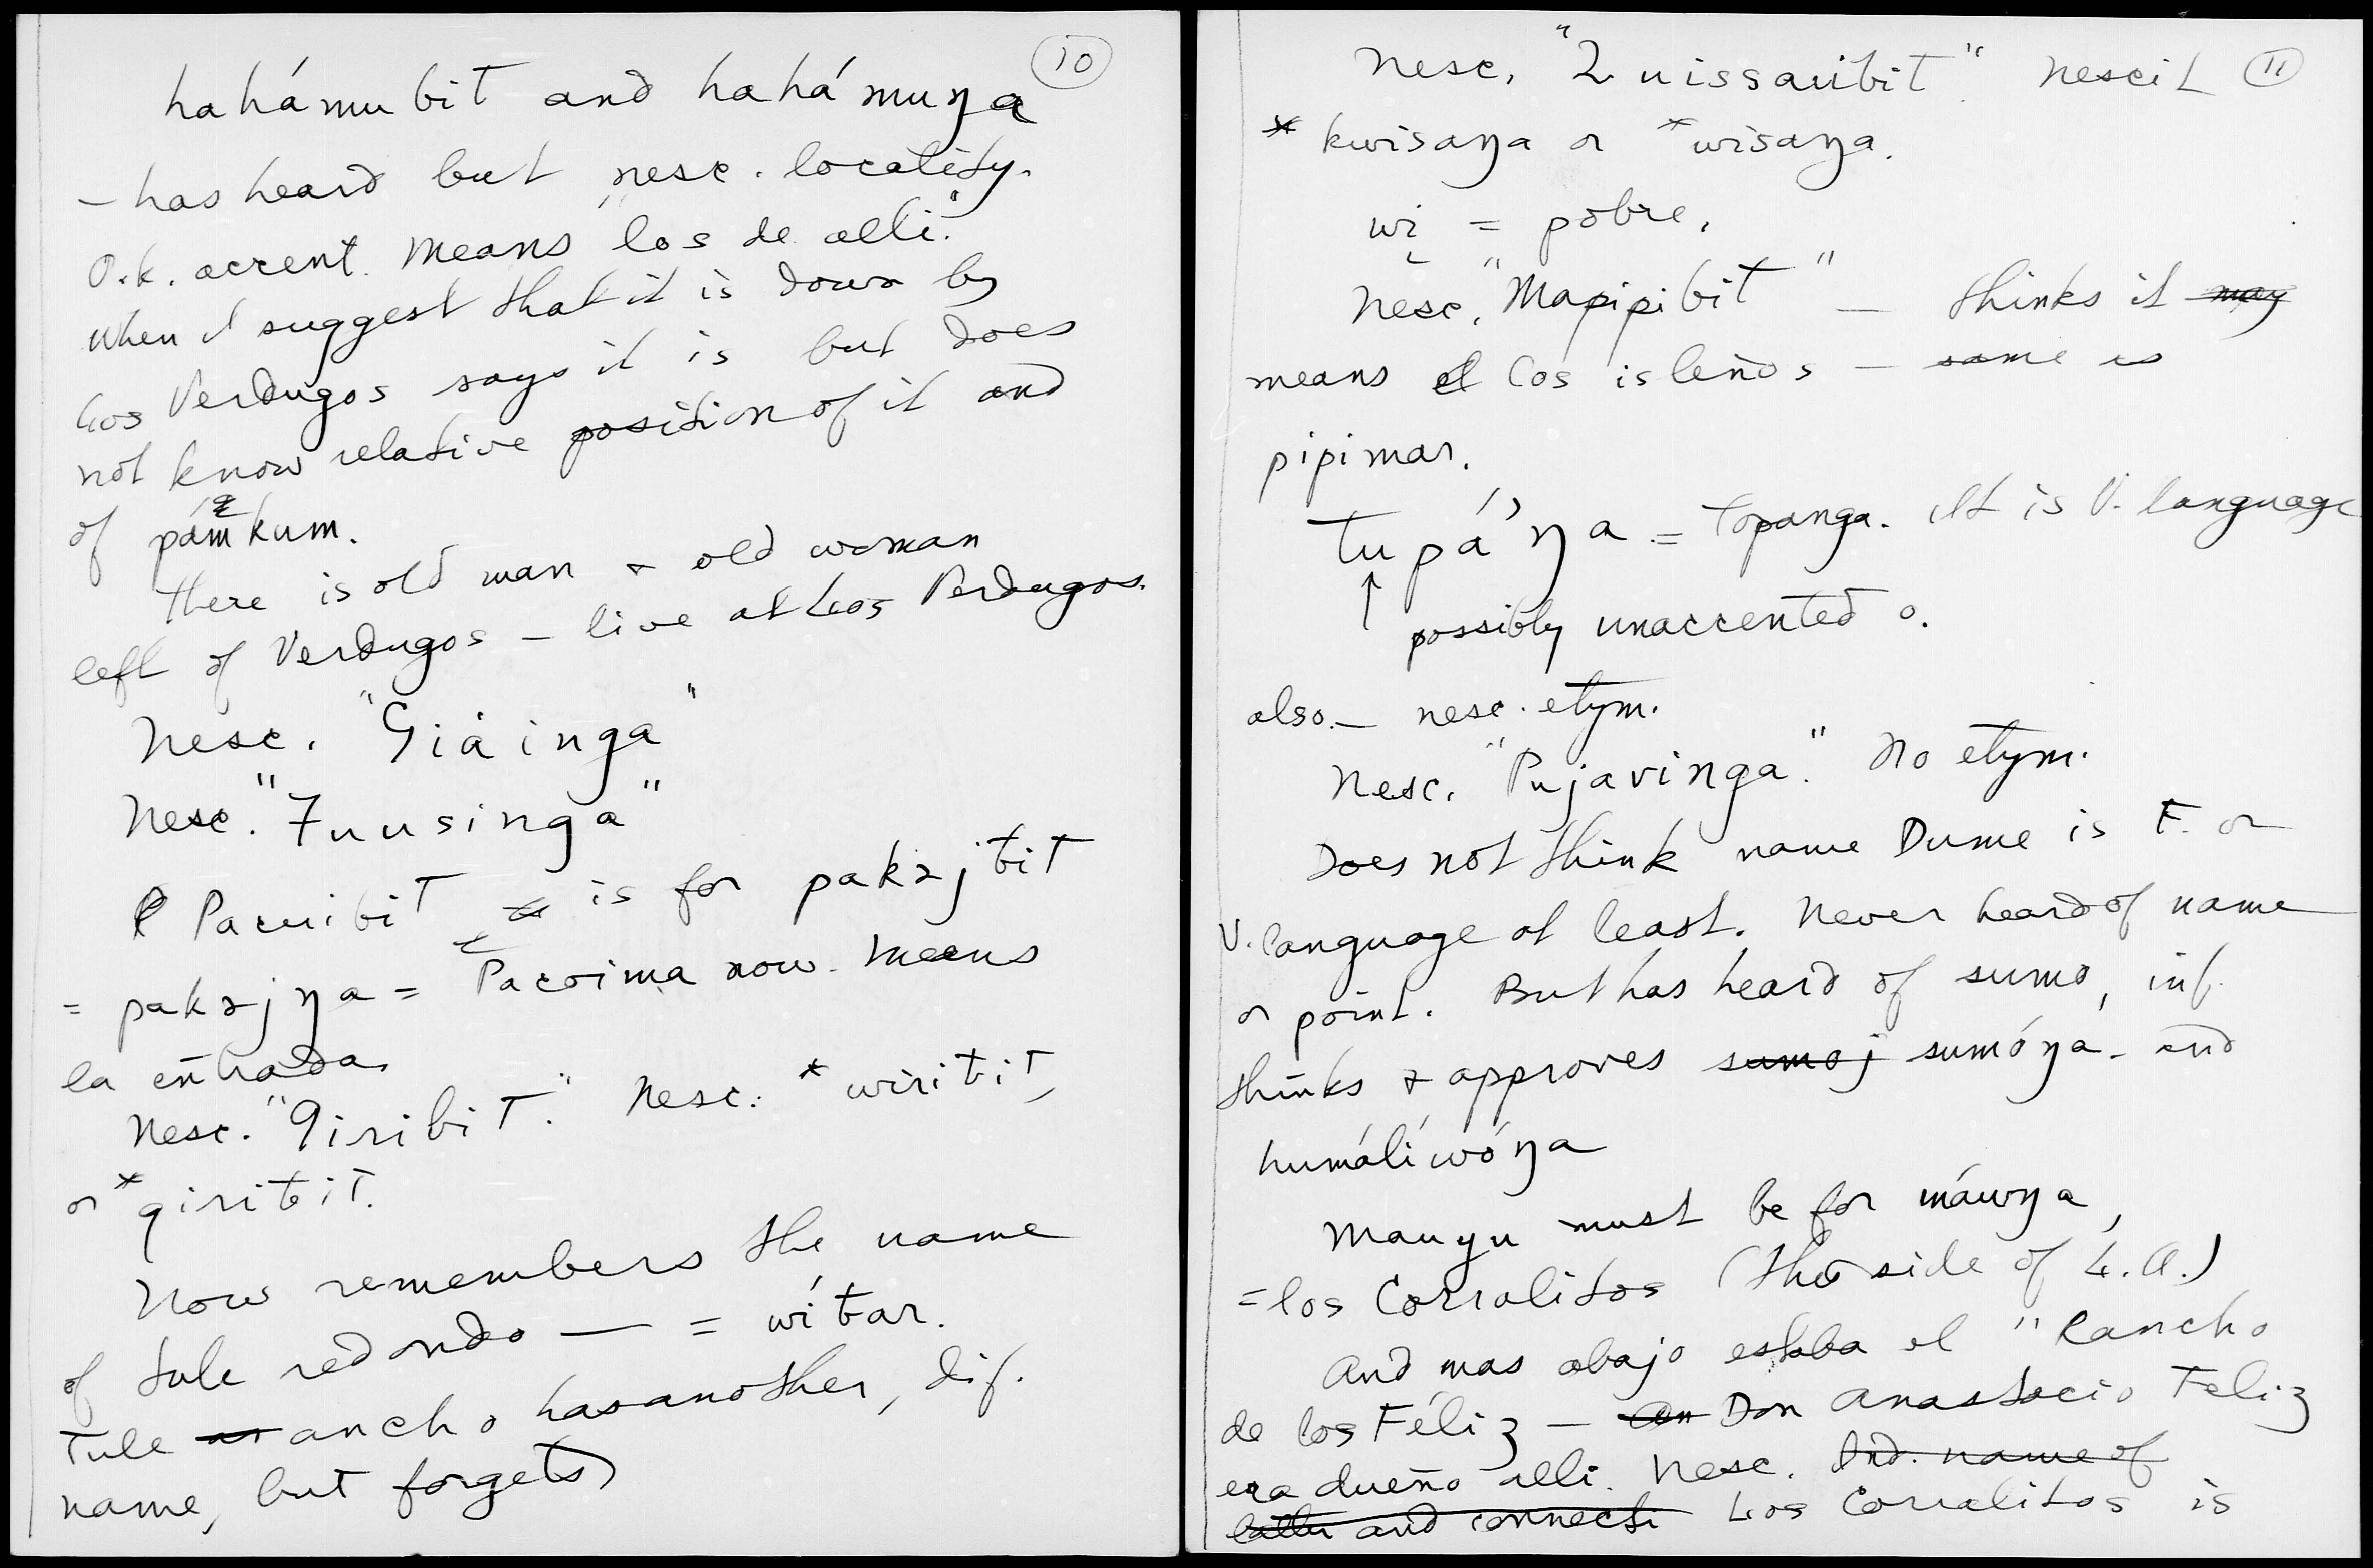 10
hahámubit and hahámuŋa
– has heard but nesc. locality.
O.k. accent. Means "los de alli."
When I suggest that it is down by
Los Verdugos says it is but does
not know relative position of it and
of pámkum.
There is old man & old woman
left of Verdugos – live at Los Verdugos.
Nesc. "Giáinga"
Nesc. "7uusinga"
Pacuibit is for pakɜjbit
= pakɜjŋa = Pacoima now. Means
la entrada.
Nesc. "9iribit." Nesc. *wiribit,
or *giribit.
Now remembers the name
of tule redondo — = wíbar.
Tule ancho has another, dif.
name, but forgets
11
Nesc. "2uissauibit" nescit
*kwisaŋa or *wisaŋa.
wi = pobre.
Nesc. "Mapipibit" — thinks it may
means los isleños – same as
pipimar.
tupá'ŋa = Topanga. It is V. language
↑
possibly unaccented o.
also. – nesc. etym.
Nesc. "Pujavinga." No etym.
Does not think name Dume is F. or
V. language at least. Never heard of name
or point. But has heard of sumo, inf.
thinks & approves sumoj sumóŋa – and
humálíwóŋa
Mauyu must be for máwŋa,
= los Corralitos (this side of L.A.)
And mas abajo estaba el "Rancho
de los Féliz – Don Anastacio Feliz
era dueño alli. Nesc. Ind. name of
latter and connecti Los Corralitos is